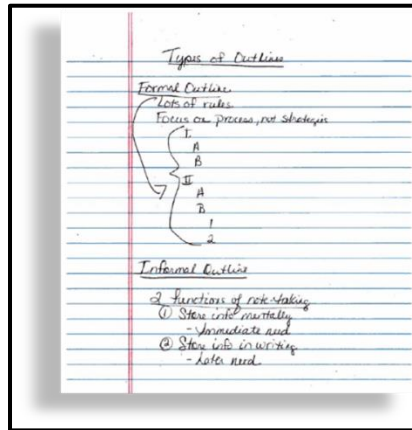 Types of Outlines
Formal Outline
Lots of rules
Focus on process, not strategies
I.
A
B
II
A
B
1
2
Informal Outline
2 functions of note-taking
① Store info mentally
- Immediate need
② Store info in writing
- Later need